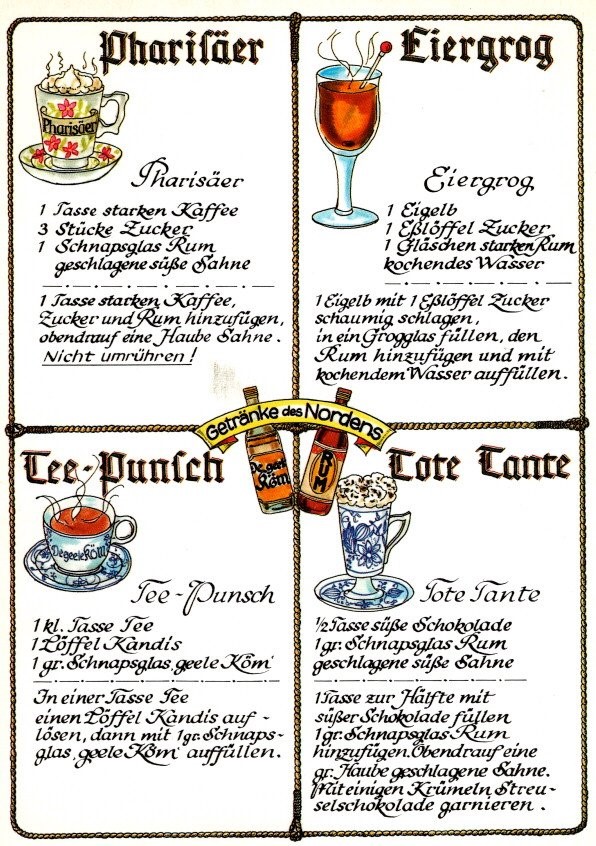 Phariſäer
Pharisäer
Pharisäer
1 Tasse starken Kaffee
3 Stücke Zucker
1 Schnapsglas Rum
geschlagene süße Sahne
1 Tasse starken Kaffee,
Zucker und Rum hinzufügen,
obendrauf eine Haube Sahne.
Nicht umrühren!
Eiergrog
Eiergrog
1 Eigelb
1 Eßlöffel Zucker
1 Gläschen starken Rum
kochendes Wasser
1 Eigelb mit 1 Eßlöffel Zucker
schaumig schlagen,
in ein Grogglas füllen, den
Rum hinzufügen und mit
kochendem Wasser auffüllen.
Getränke des Nordens
De geele
Köm
RUM
Tee-Punſch
De geele KÖM
Tee-Punsch
1 kl. Tasse Tee
1 Löffel Kandis
1 gr. Schnapsglas „geele Köm“
In einer Tasse Tee
einen Löffel Kandis auf-
lösen, dann mit 1 gr. Schnaps-
glas „geele Köm“ auffüllen.
Tote Tante
Tote Tante
½ Tasse süße Schokolade
1 gr. Schnapsglas Rum
geschlagene süße Sahne
1 Tasse zur Hälfte mit
süßer Schokolade füllen
1 gr. Schnapsglas Rum
hinzufügen. Obendrauf eine
gr. Haube geschlagene Sahne.
Mit einigen Krümeln Streu-
selschokolade garnieren.